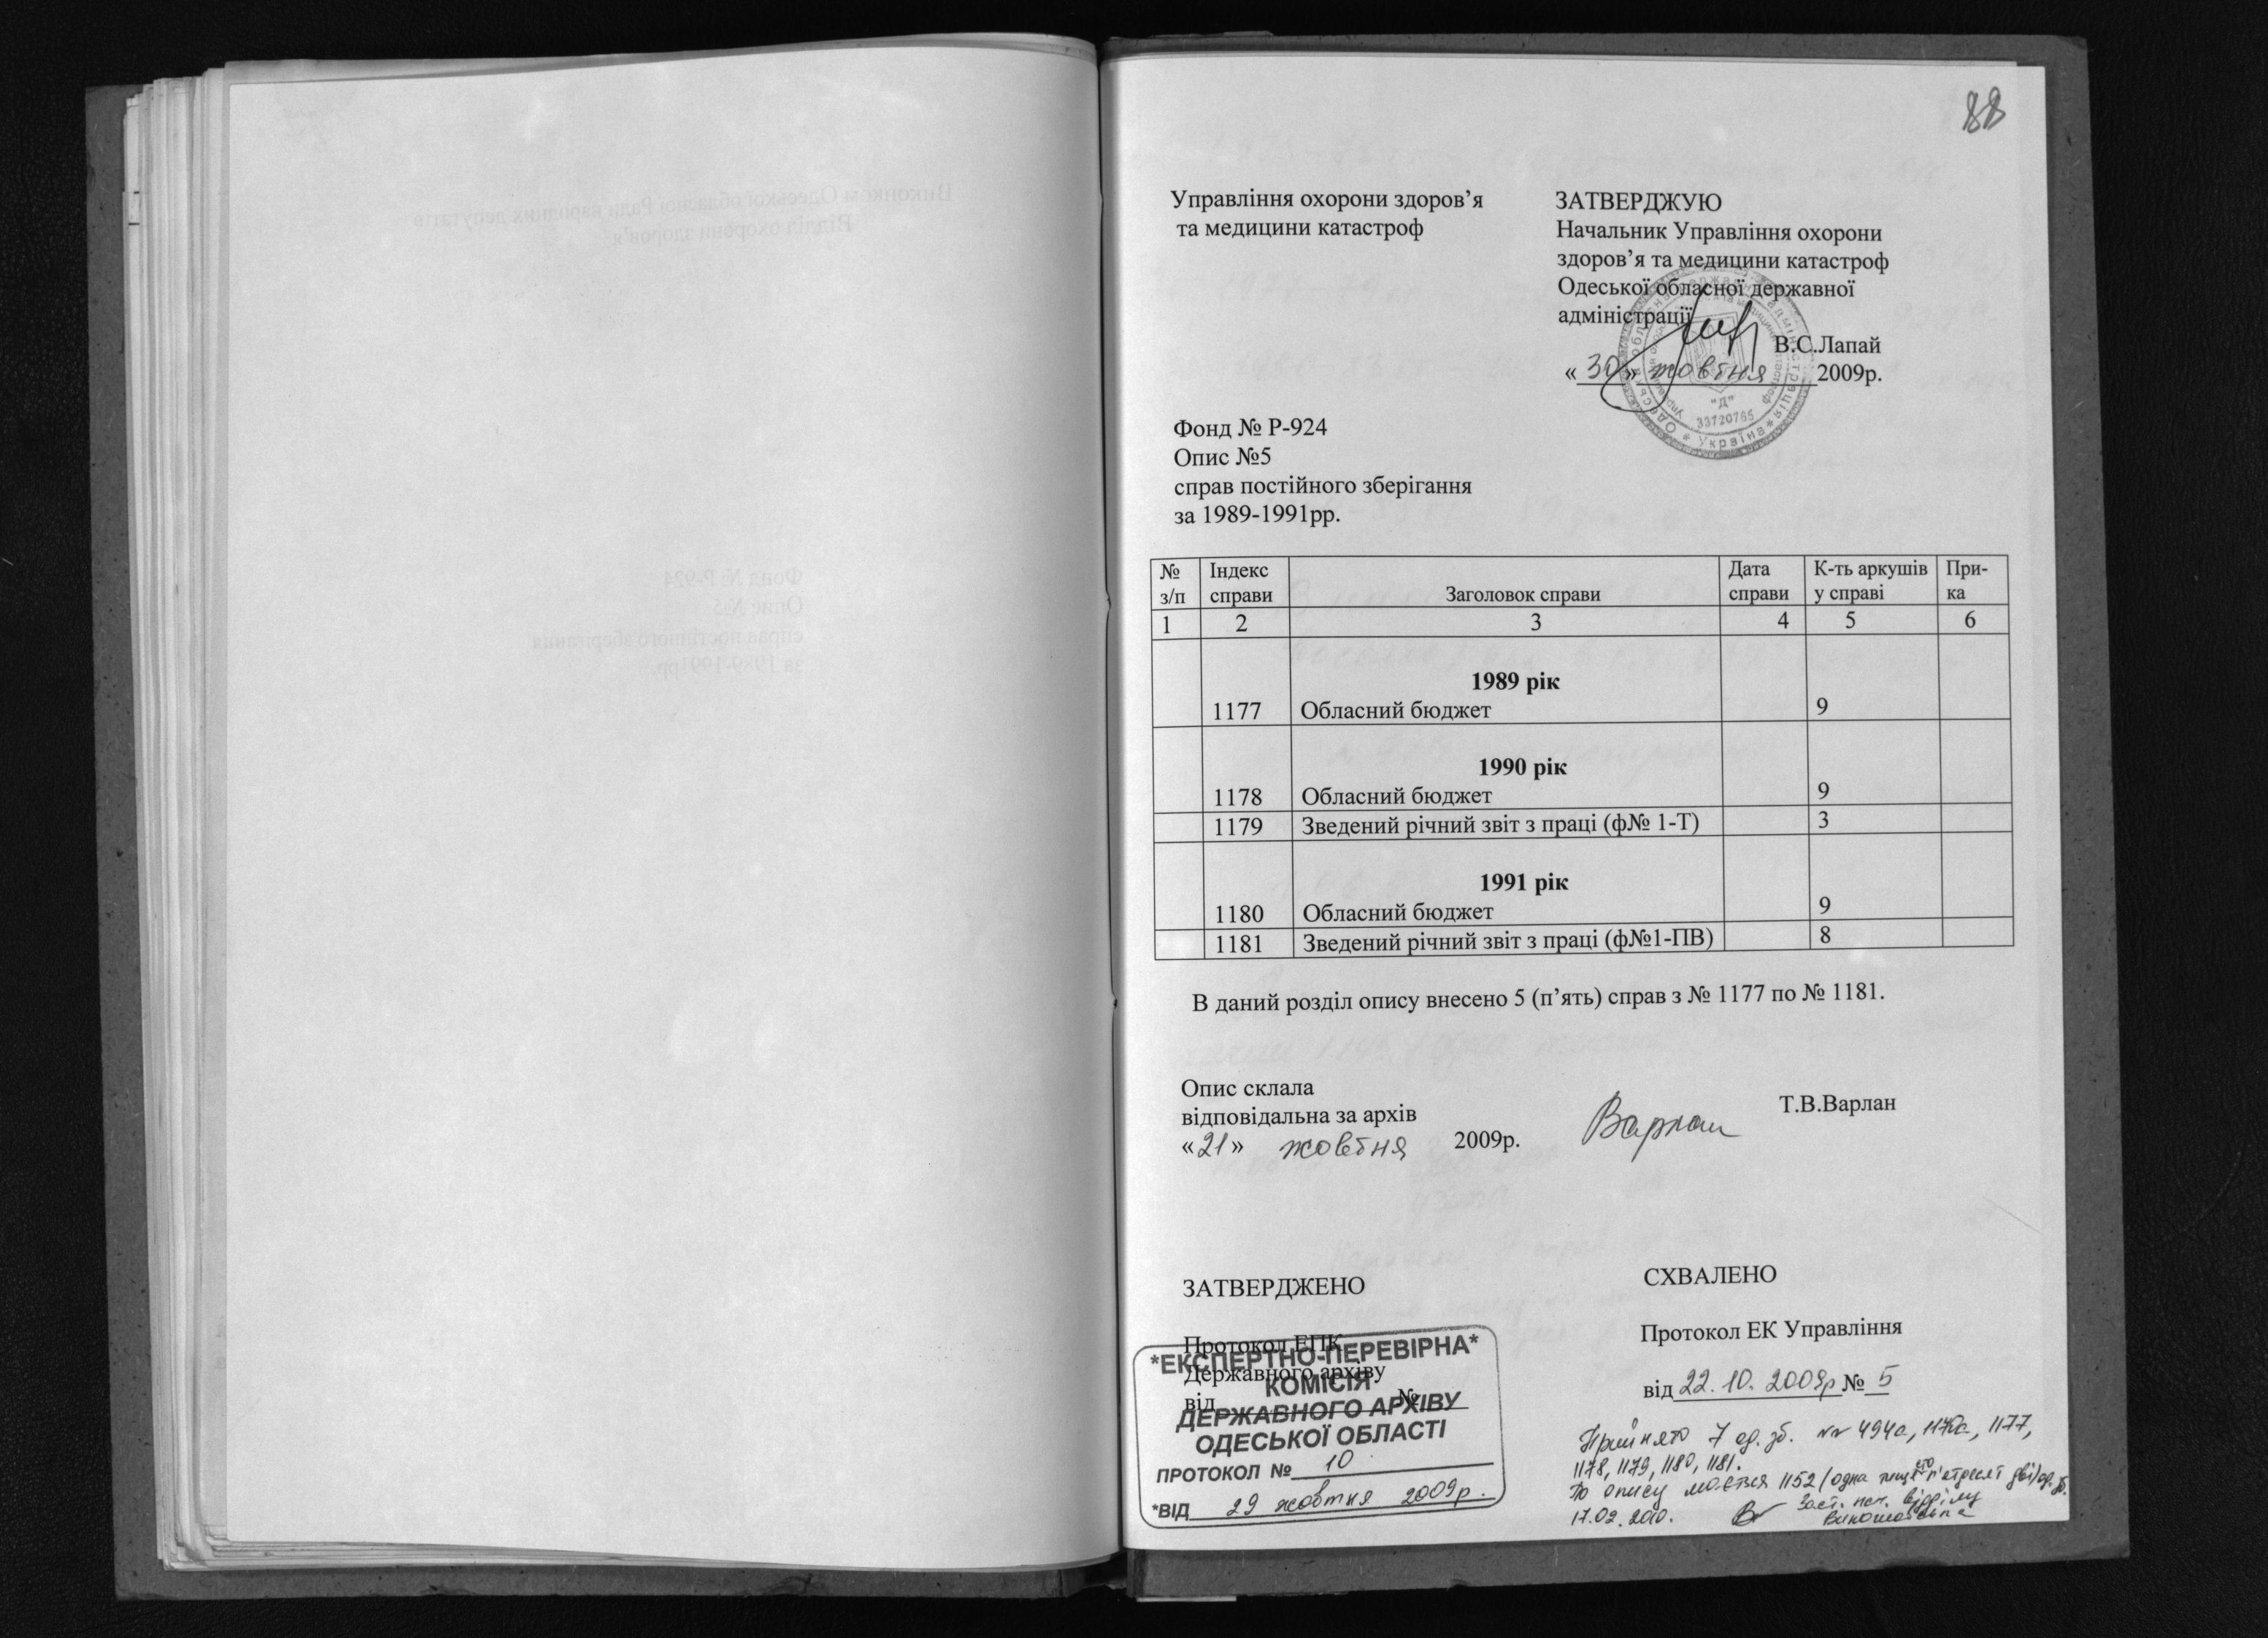 88
Управління охорони здоров’я
та медицини катастроф
ЗАТВЕРДЖУЮ
Начальник Управління охорони
здоров’я та медицини катастроф
Одеської обласної державної
адміністрації
В.С.Лапай
«30» жовтня 2009р.
"Д"
33720765
* Україна *
Фонд № Р-924
Опис №5
справ постійного зберігання
за 1989-1991рр.
№ з/п Індекс справи Заголовок справи Дата справи К-ть аркушів у справі При-ка
1 2 3 4 5 6
1989 рік
1177 Обласний бюджет 9
1990 рік
1178 Обласний бюджет 9
1179 Зведений річний звіт з праці (ф№ 1-Т) 3
1991 рік
1180 Обласний бюджет 9
1181 Зведений річний звіт з праці (ф№1-ПВ) 8
В даний розділ опису внесено 5 (п’ять) справ з № 1177 по № 1181.
Опис склала
відповідальна за архів
«21» жовтня 2009р.
Варлан
Т.В.Варлан
ЗАТВЕРДЖЕНО
Протокол ЕПК
Державного архіву
від №
*ЕКСПЕРТНО-ПЕРЕВІРНА*
КОМІСІЯ
ДЕРЖАВНОГО АРХІВУ
ОДЕСЬКОЇ ОБЛАСТІ
ПРОТОКОЛ № 10
*ВІД 29 жовтня 2009р.
СХВАЛЕНО
Протокол ЕК Управління
від 22.10.2009р № 5
Прийнято 7 од. зб. №№ 494а, 1170а, 1177,
1178, 1179, 1180, 1181.
По опису мається 1152 (одна тищ сто п'ятдесят дві) од. зб.
17.02.2010. Заст. нач. відділу